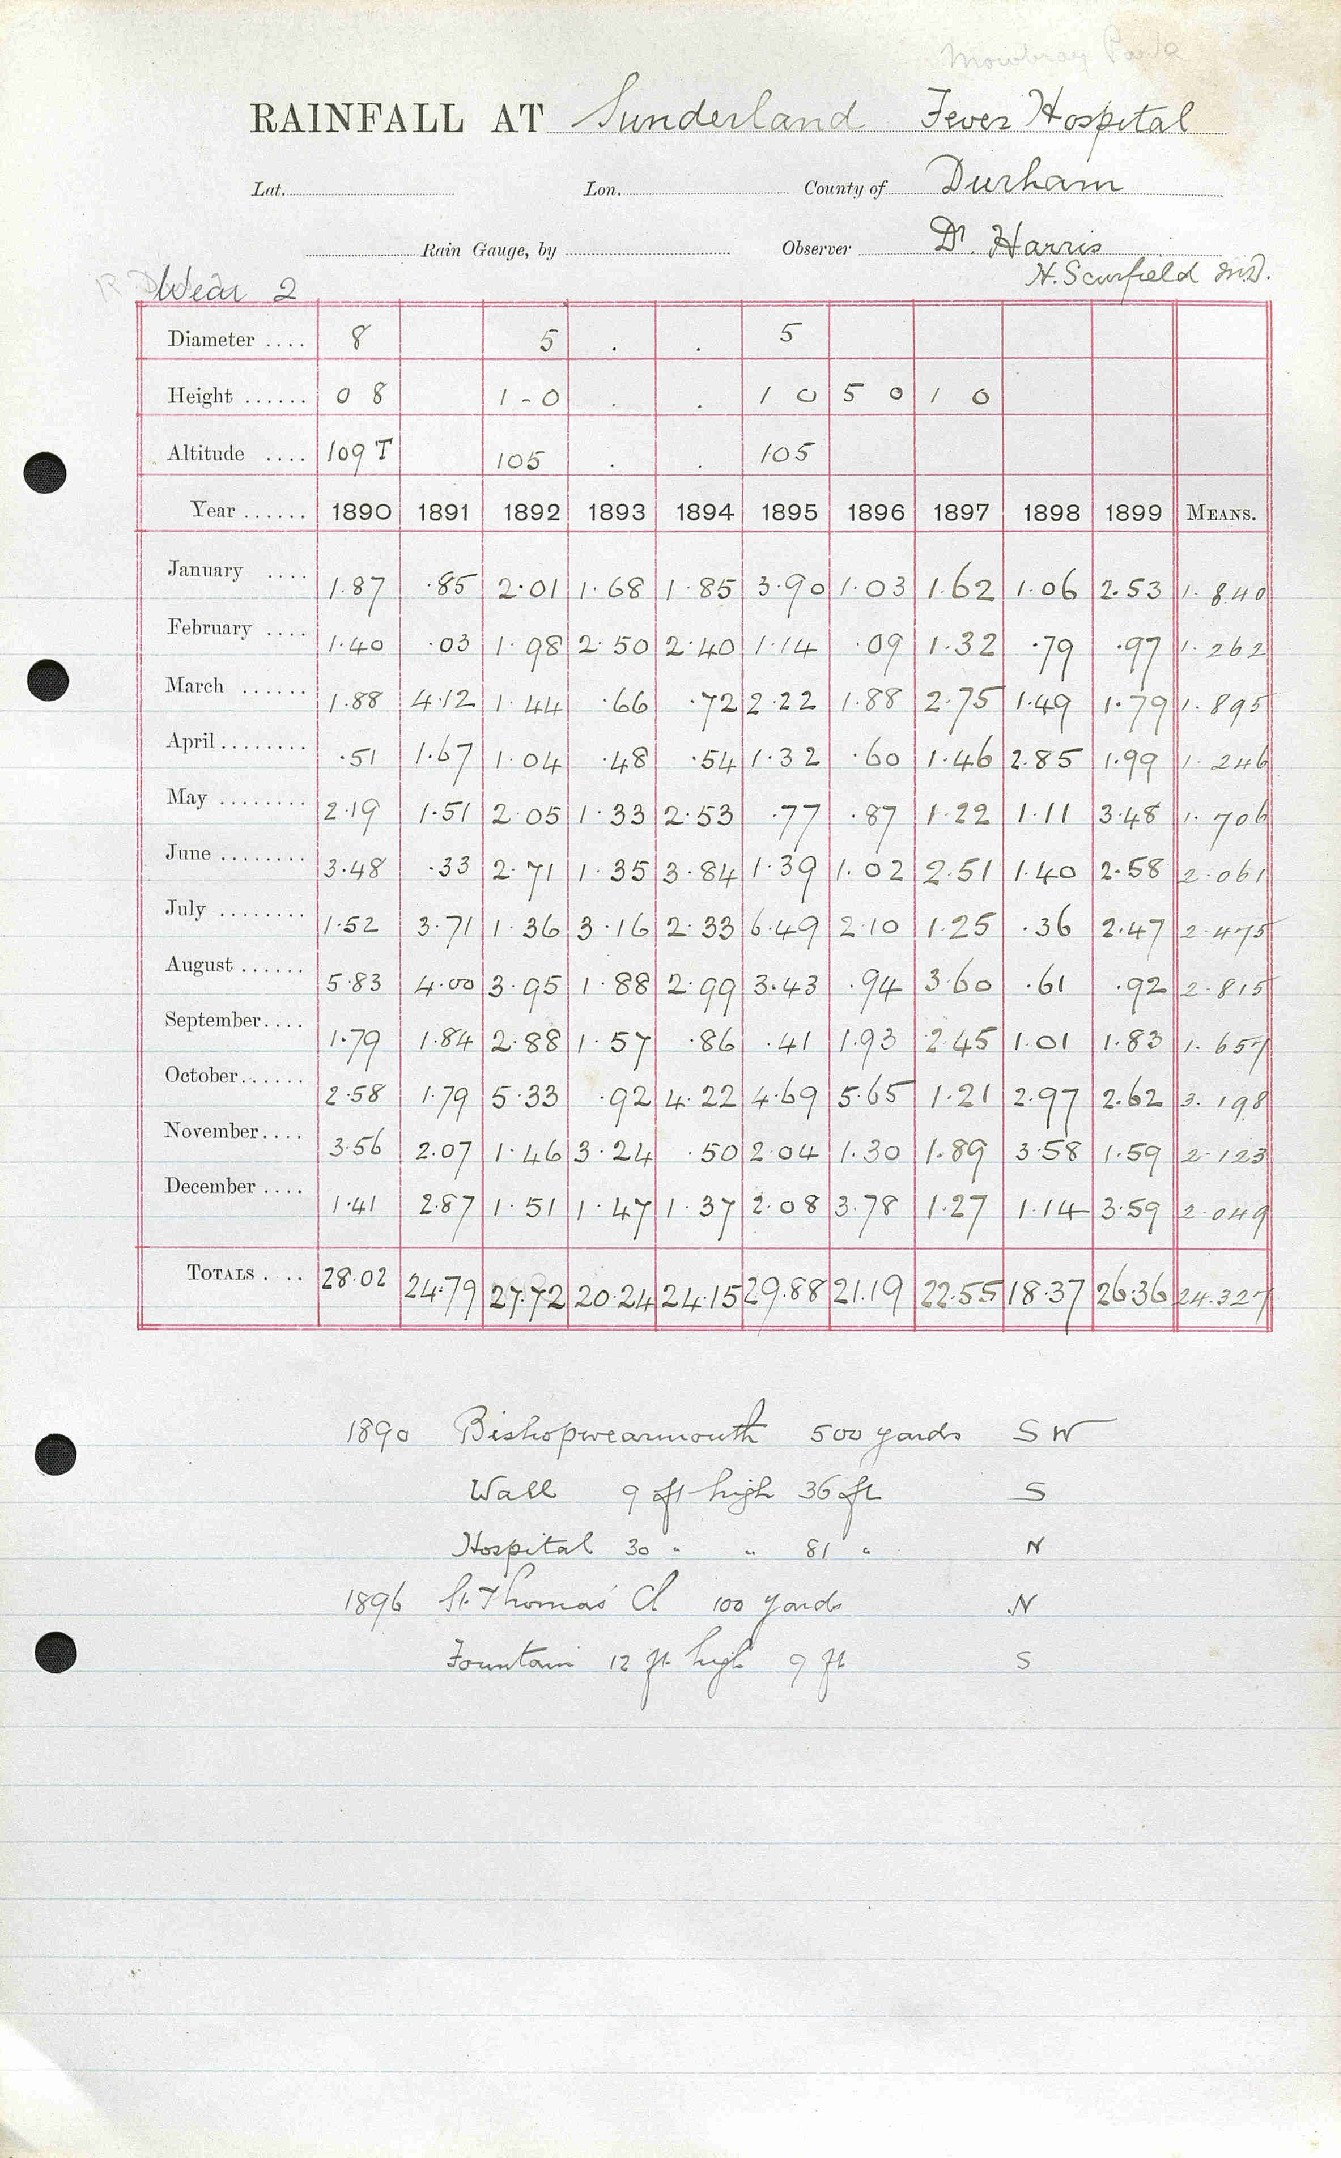 Mowbray Park
RAINFALL AT Sunderland Fever Hospital
Lat. Lon. County of Durham
Rain Gauge, by Observer Dr. Harris
H. Scurfield M.D.
Wear 2
Diameter .... 8 5 . . 5
Height ...... 0 8 1-0 . . 1 0 5 0 1 0
Altitude .... 109 T 105 . . 105
Year ...... 1890 1891 1892 1893 1894 1895 1896 1897 1898 1899 MEANS.
January .... 1.87 .85 2.01 1.68 1.85 3.90 1.03 1.62 1.06 2.53 1.840
February .... 1.40 .03 1.98 2.50 2.40 1.14 .09 1.32 .79 .97 1.262
March ...... 1.88 4.12 1.44 .66 .72 2.22 1.88 2.75 1.49 1.79 1.895
April ........ .51 1.67 1.04 .48 .54 1.32 .60 1.46 2.85 1.99 1.246
May ........ 2.19 1.51 2.05 1.33 2.53 .77 .87 1.22 1.11 3.48 1.706
June ........ 3.48 .33 2.71 1.35 3.84 1.39 1.02 2.51 1.40 2.58 2.061
July ........ 1.52 3.71 1.36 3.16 2.33 6.49 2.10 1.25 .36 2.47 2.475
August ...... 5.83 4.00 3.95 1.88 2.99 3.43 .94 3.60 .61 .92 2.815
September.... 1.79 1.84 2.88 1.57 .86 .41 1.93 2.45 1.01 1.83 1.657
October...... 2.58 1.79 5.33 .92 4.22 4.69 5.65 1.21 2.97 2.62 3.198
November.... 3.56 2.07 1.46 3.24 .50 2.04 1.30 1.89 3.58 1.59 2.123
December .... 1.41 2.87 1.51 1.47 1.37 2.08 3.78 1.27 1.14 3.59 2.049
TOTALS .... 28.02 24.79 27.72 20.24 24.15 29.88 21.19 22.55 18.37 26.36 24.327
1890 Bishopwearmouth 500 yards SW
Wall 9 ft high 36 ft S
Hospital 30 " " 81 " N
1896 St. Thomas' Ch 100 yards N
Fountain 12 ft high 9 ft S